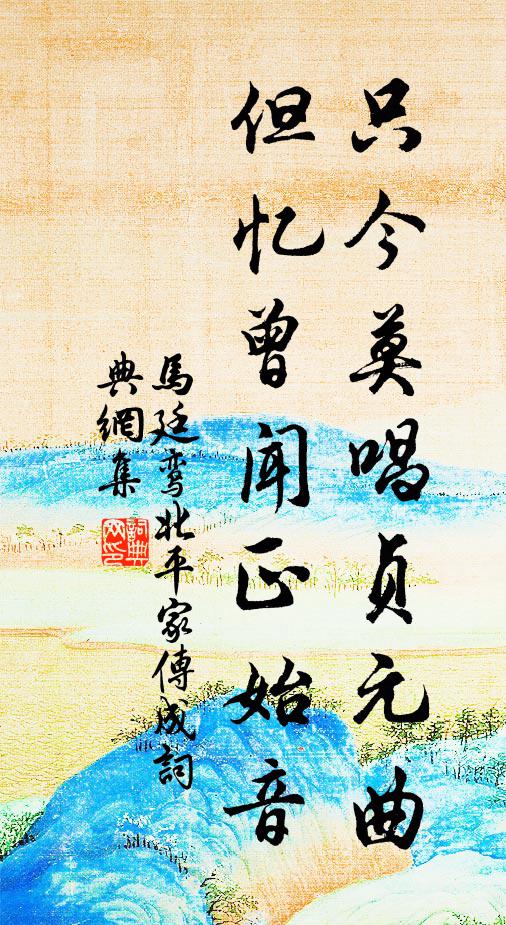 只今莫唱贞元曲
但忆曾闻正始音
馬廷鸾北平家傳成詞
典網集
詞典
网印